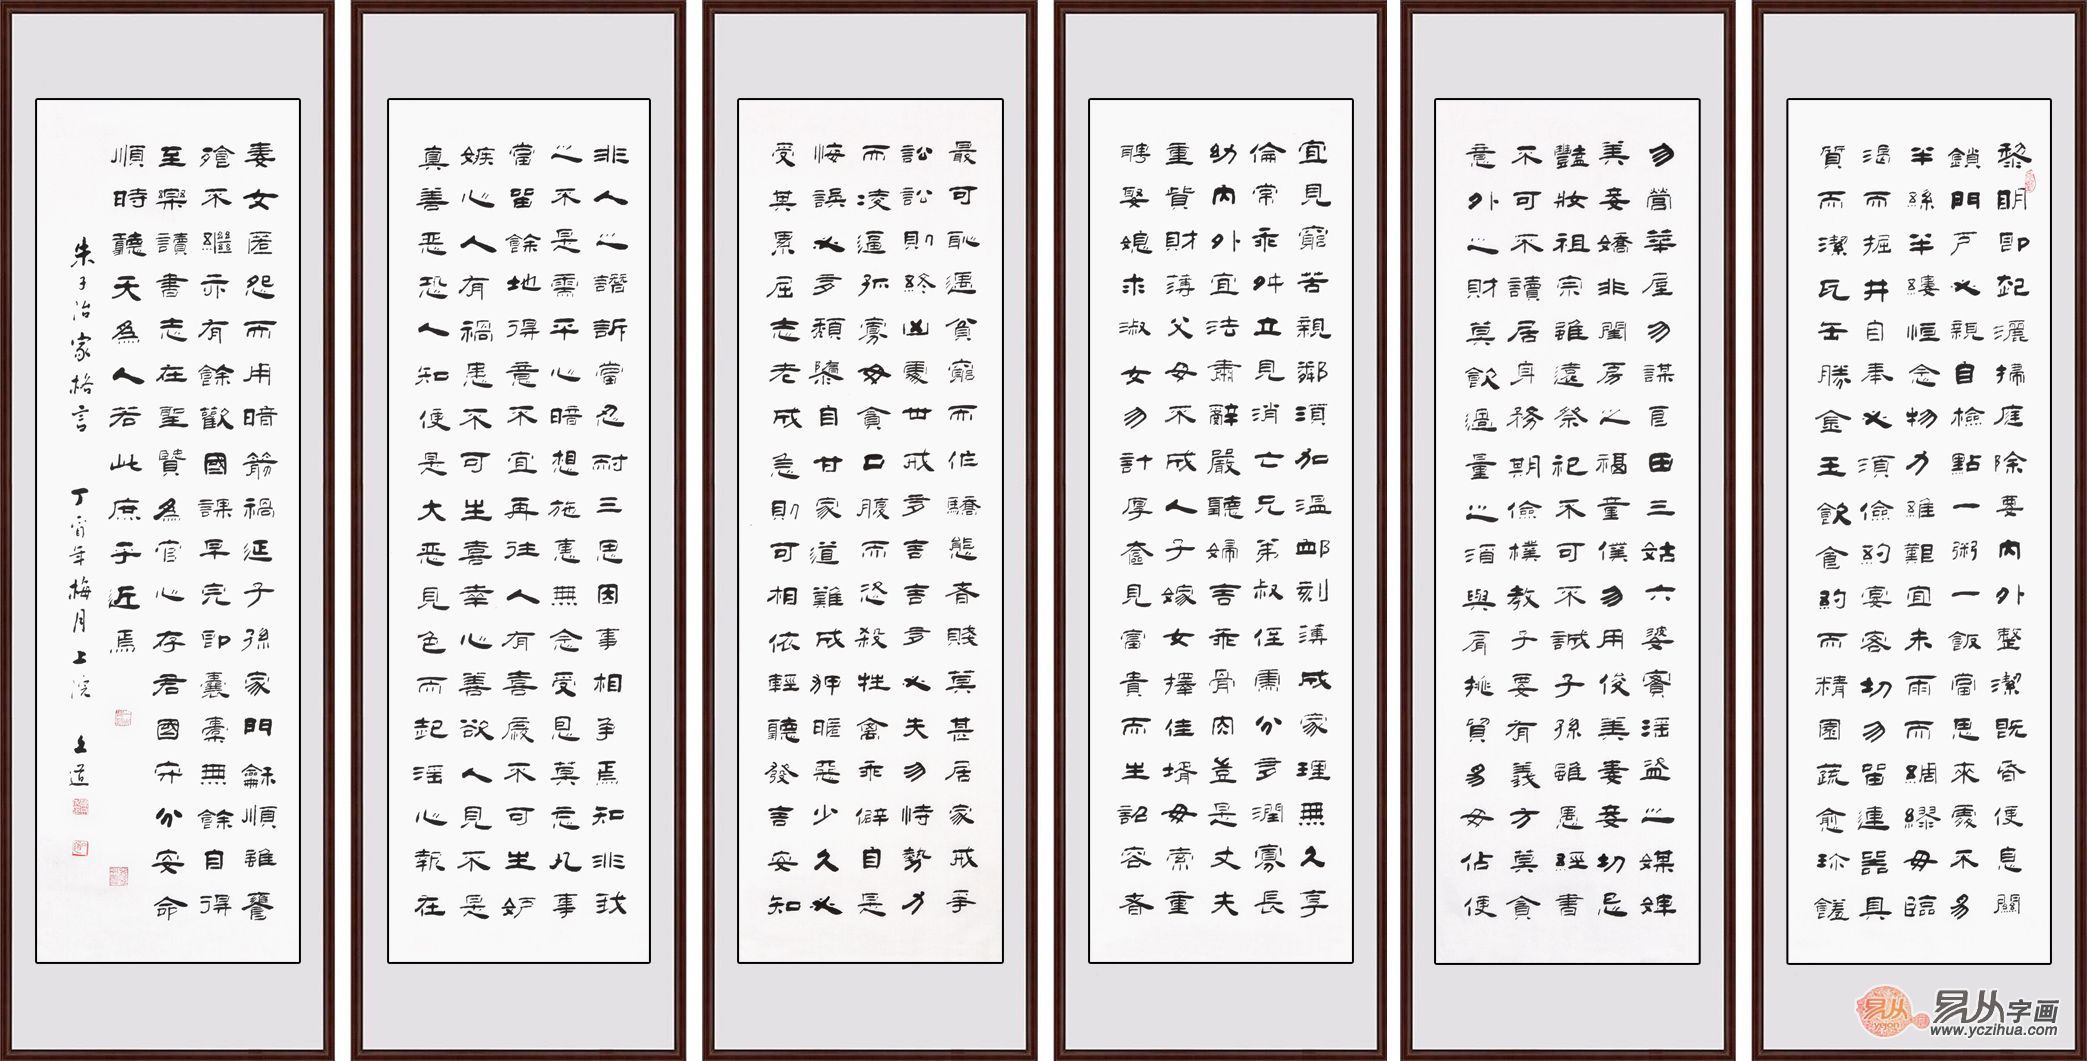 黎明即起灑掃庭除要內外整潔既昏便息關
鎖門戶必親自檢點一粥一飯當思來處不易
半絲半縷恒念物力維艱宜未雨而綢繆毋臨
渴而掘井自奉必須儉約宴客切勿留連器具
質而潔瓦缶勝金玉飲食約而精園蔬愈珍饈
勿營華屋勿謀良田三姑六婆實淫盜之媒婢
美妾嬌非閨房之福童僕勿用俊美妻妾切忌
豔妝祖宗雖遠祭祀不可不誠子孫雖愚經書
不可不讀居身務期儉樸教子要有義方莫貪
意外之財莫飲過量之酒與肩挑貿易毋佔便
宜見窮苦親鄰須加溫卹刻薄成家理無久享
倫常乖舛立見消亡兄弟叔侄需分多潤寡長
幼內外宜法肅辭嚴聽婦言乖骨肉豈是丈夫
重貲財薄父母不成人子嫁女擇佳壻毋索重
聘娶媳求淑女勿計厚奩見富貴而生諂容者
最可恥遇貧窮而作驕態者賤莫甚居家戒爭
訟訟則終凶處世戒多言言多必失勿恃勢力
而凌逼孤寡毋貪口腹而恣殺牲禽乖僻自是
悔誤必多頹隳自甘家道難成狎暱惡少久必
受其累屈志老成急則可相依輕聽發言安知
非人之譖訴當忍耐三思因事相爭焉知非我
之不是需平心暗想施惠無念受恩莫忘凡事
當留餘地得意不宜再往人有喜慶不可生妒
嫉心人有禍患不可生喜幸心善欲人見不是
真善惡恐人知便是大惡見色而起淫心報在
妻女匿怨而用暗箭禍延子孫家門龢順雖饔
飧不繼亦有餘歡國課早完即囊橐無餘自得
至樂讀書志在聖賢為官心存君國守分安命
順時聽天為人若此庶乎近焉
朱子治家格言 丁酉年梅月上浣 道
易从字画
www.yczihua.com